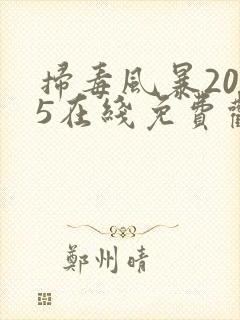 掃毒風暴20
5在綫免費
鄭州晴